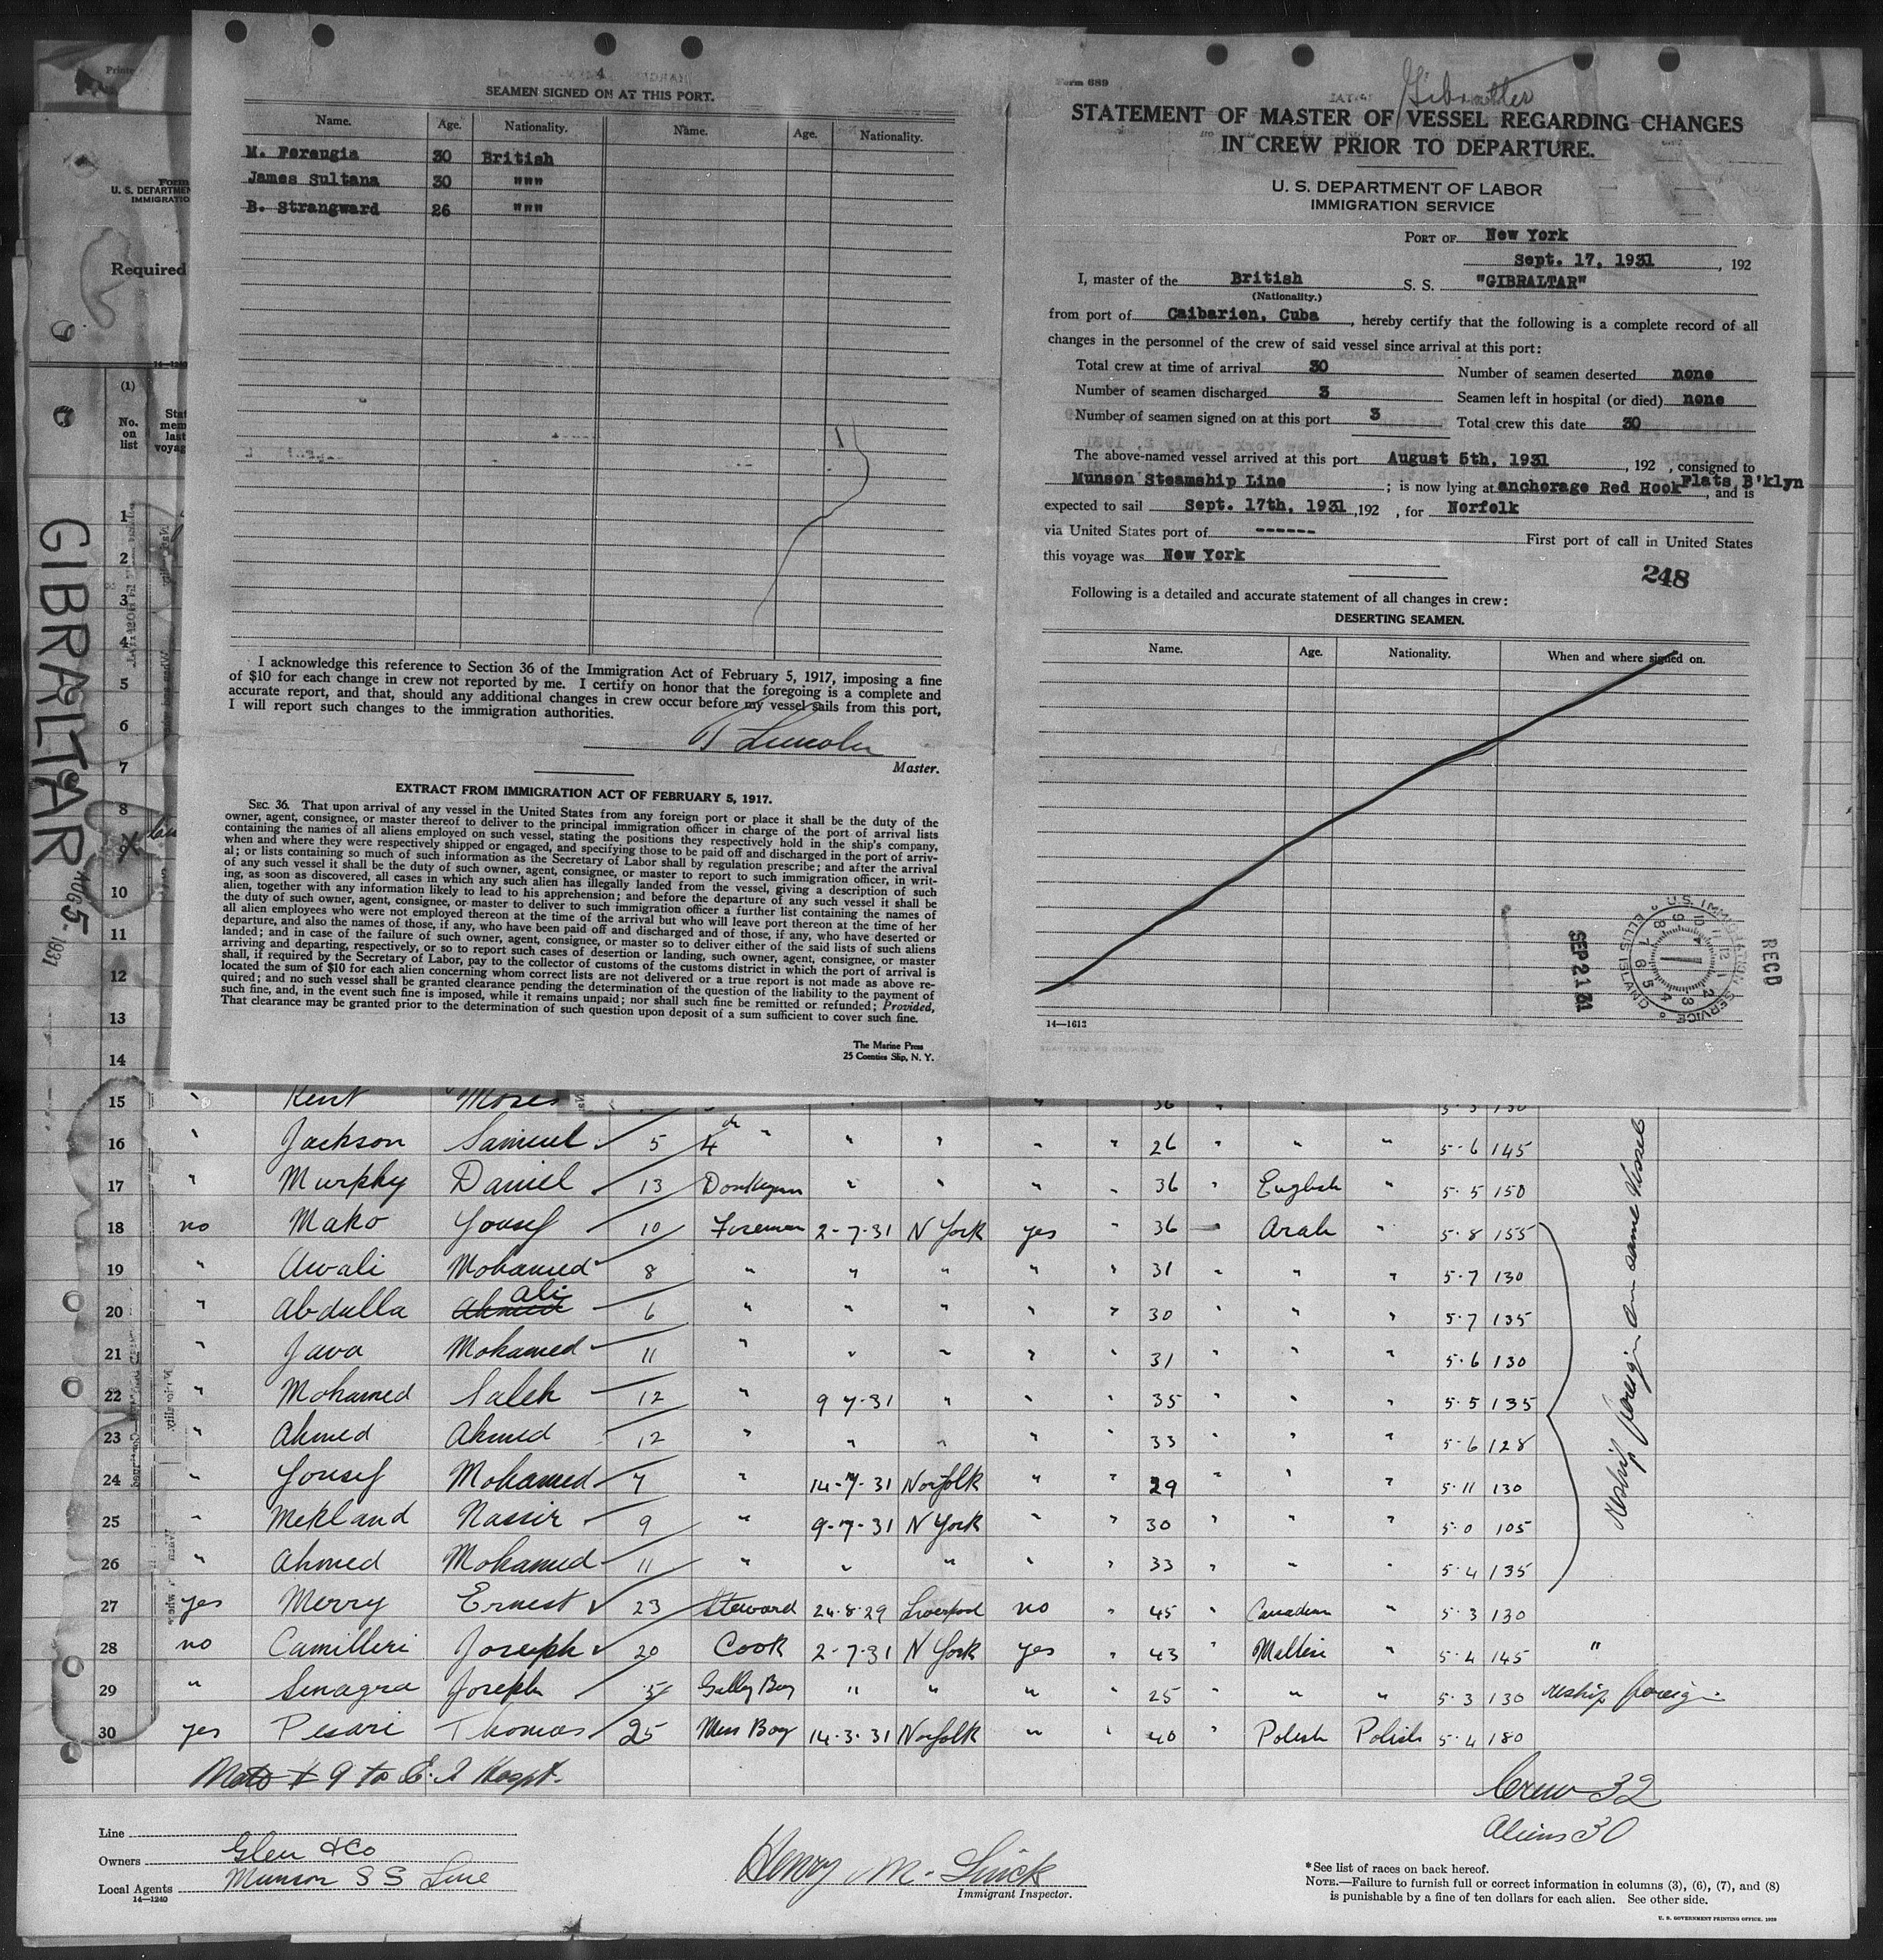 4
SEAMEN SIGNED ON AT THIS PORT.
Name. Age. Nationality. Name. Age. Nationality.
M. Perengia 30 British
James Sultana 30 """
B. Strangward 26 """
I acknowledge this reference to Section 36 of the Immigration Act of February 5, 1917, imposing a fine
of $10 for each change in crew not reported by me. I certify on honor that the foregoing is a complete and
accurate report, and that, should any additional changes in crew occur before my vessel sails from this port,
I will report such changes to the immigration authorities.
Lincoln
Master.
EXTRACT FROM IMMIGRATION ACT OF FEBRUARY 5, 1917.
SEC. 36. That upon arrival of any vessel in the United States from any foreign port or place it shall be the duty of the
owner, agent, consignee, or master thereof to deliver to the principal immigration officer in charge of the port of arrival lists
containing the names of all aliens employed on such vessel, stating the positions they respectively hold in the ship's company,
when and where they were respectively shipped or engaged, and specifying those to be paid off and discharged in the port of arriv-
al; or lists containing so much of such information as the Secretary of Labor shall by regulation prescribe; and after the arrival
of any such vessel it shall be the duty of such owner, agent, consignee, or master to report to such immigration officer, in writ-
ing, as soon as discovered, all cases in which any such alien has illegally landed from the vessel, giving a description of such
alien, together with any information likely to lead to his apprehension; and before the departure of any such vessel it shall be
the duty of such owner, agent, consignee, or master to deliver to such immigration officer a further list containing the names of
all alien employees who were not employed thereon at the time of the arrival but who will leave port thereon at the time of her
departure, and also the names of those, if any, who have been paid off and discharged and of those, if any, who have deserted or
landed; and in case of the failure of such owner, agent, consignee, or master so to deliver either of the said lists of such aliens
arriving and departing, respectively, or so to report such cases of desertion or landing, such owner, agent, consignee, or master
shall, if required by the Secretary of Labor, pay to the collector of customs of the customs district in which the port of arrival is
located the sum of $10 for each alien concerning whom correct lists are not delivered or a true report is not made as above re-
quired; and no such vessel shall be granted clearance pending the determination of the question of the liability to the payment of
such fine, and, in the event such fine is imposed, while it remains unpaid; nor shall such fine be remitted or refunded; Provided,
That clearance may be granted prior to the determination of such question upon deposit of a sum sufficient to cover such fine.
The Marine Press
25 Coenties Slip, N. Y.
Form 689
Gibralter
STATEMENT OF MASTER OF VESSEL REGARDING CHANGES
IN CREW PRIOR TO DEPARTURE.
U. S. DEPARTMENT OF LABOR
IMMIGRATION SERVICE
PORT OF New York
Sept. 17, 1931, 192
I, master of the British S. S. "GIBRALTAR"
(Nationality.)
from port of Caibarien, Cuba, hereby certify that the following is a complete record of all
changes in the personnel of the crew of said vessel since arrival at this port:
Total crew at time of arrival 30 Number of seamen deserted none
Number of seamen discharged 3 Seamen left in hospital (or died) none
Number of seamen signed on at this port 3 Total crew this date 30
The above-named vessel arrived at this port August 5th, 1931, 192 , consigned to
Munson Steamship Line ; is now lying at anchorage Red Hook Flats, B'klyn, and is
expected to sail Sept. 17th, 1931, 192 , for Norfolk
via United States port of ------ First port of call in United States
this voyage was New York
248
Following is a detailed and accurate statement of all changes in crew:
DESERTING SEAMEN.
Name. Age. Nationality. When and where signed on.
RECD
U.S. IMMIGRATION SERVICE ELLIS ISLAND
SEP 21 31
14—1613
Form
U. S. DEPARTMEN
IMMIGRATIO
Required
14—1240
(1)
No. on list
GIBRALTAR
AUG 5 - 1931
1
2
3
4
5
6
7
8
X
10
11
12
13
14
15 " Kent Moses 36 " 5-5 150
16 " Jackson Samuel 5 4th " " " " " 26 " " " 5-6 145
17 " Murphy Daniel 13 Donkeyman " " " " 36 " English " 5-5 150
18 no Mako Yousef 10 Fireman 2-7-31 N York yes " 36 " Arab " 5-8 155
19 " Awali Mohamed 8 " " " " " 31 " " " 5-7 130
20 " Abdulla Ahmed Ali 6 " " " " " 30 " " " 5-7 135
21 " Java Mohamed 11 " " " " " 31 " " " 5-6 130
22 " Mohamed Saleh 12 " 9 7-31 " " " 35 " " " 5-5 135
23 " Ahmed Ahmed 12 " " " " " 33 " " " 5-6 128
24 " Yousef Mohamed 7 " 14-7-31 Norfolk " " 29 " " " 5-11 130
25 " Mekland Nassir 9 " 9-7-31 N York " " 30 " " " 5-0 105
26 " Ahmed Mohamed 11 " " " " " 33 " " " 5-4 135
reship foreign on same vessel
27 yes Merry Ernest 23 Steward 24-8-29 Liverpool no " 45 " Canadian " 5-3 130
28 no Camilleri Joseph 20 Cook 2-7-31 N York yes " 43 " Maltese " 5-4 145 "
29 " Senagra Joseph 5 Gally Boy " " " " 25 " " " 5-3 130 reship foreign
30 yes Pesari Thomas 25 Mess Boy 14-3-31 Norfolk " " 40 " Polish Polish 5-4 180
# 9 to E. I Hospt.
Crew 32
Aliens 30
Line
Owners Glen & Co
Local Agents Munson S S Line
14—1240
Henry M.
Immigrant Inspector.
*See list of races on back hereof.
NOTE.—Failure to furnish full or correct information in columns (3), (6), (7), and (8)
is punishable by a fine of ten dollars for each alien. See other side.
U. S. GOVERNMENT PRINTING OFFICE. 1929